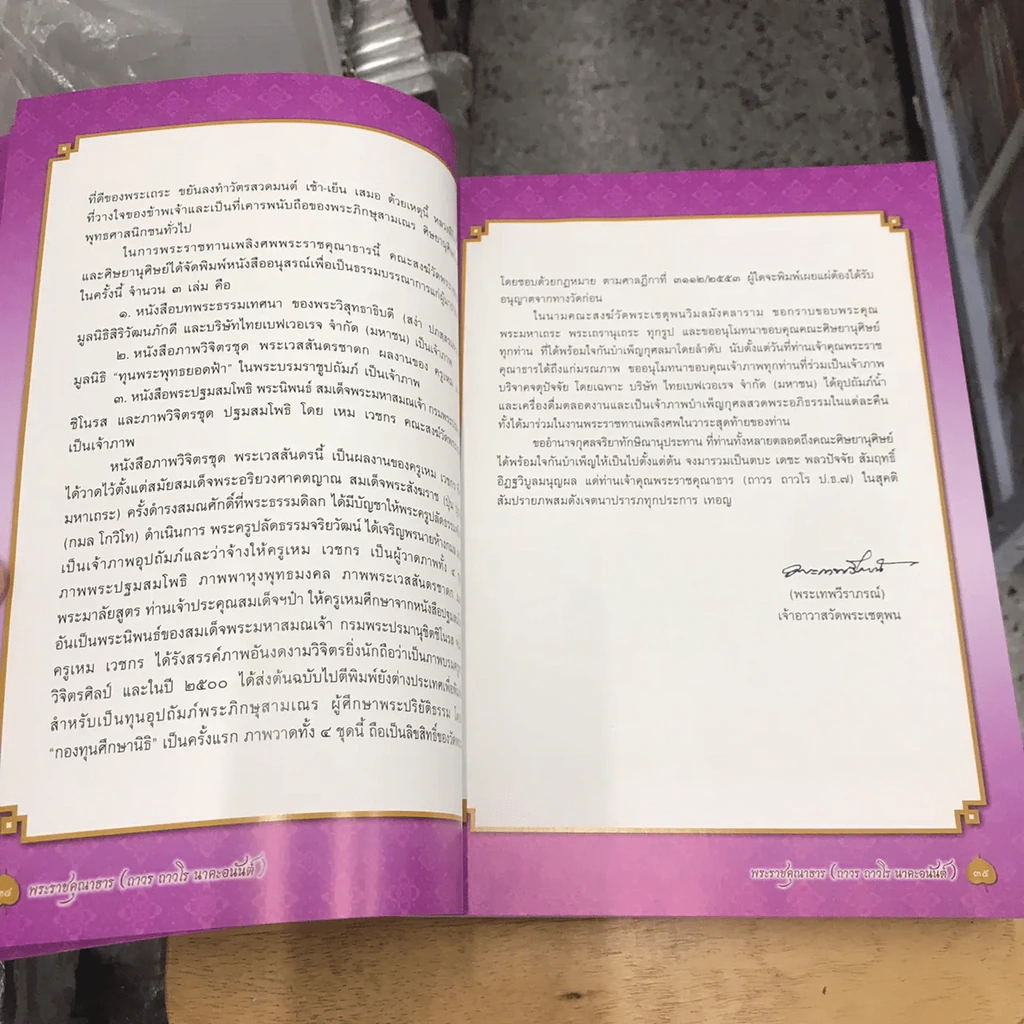 ที่ดีของพระเถระ ขยันลงทำวัตรสวดมนต์ เช้า-เย็น เสมอ ด้วยเหตุนี้
ที่วางใจของข้าพเจ้าและเป็นที่เคารพนับถือของพระภิกษุสามเณร
พุทธศาสนิกชนทั่วไป
ในการพระราชทานเพลิงศพพระราชคุณาธารนี้ คณะสงฆ์วัดพระเชตุพน
และศิษยานุศิษย์ได้จัดพิมพ์หนังสืออนุสรณ์เพื่อเป็นธรรมบรรณาการแก่
ในครั้งนี้ จำนวน ๓ เล่ม คือ
๑. หนังสือบทพระธรรมเทศนา ของพระวิสุทธาธิบดี (สง่า
มูลนิธิสิริวัฒนภักดี และบริษัทไทยเบฟเวอเรจ จำกัด (มหาชน) เป็นเจ้าภาพ
๒. หนังสือภาพวิจิตรชุด พระเวสสันดรชาดก ผลงานของ ครูเหม
มูลนิธิ “ทุนพระพุทธยอดฟ้า” ในพระบรมราชูปถัมภ์ เป็นเจ้าภาพ
๓. หนังสือพระปฐมสมโพธิ พระนิพนธ์ สมเด็จพระมหาสมณเจ้า
ชิโนรส และภาพวิจิตรชุด ปฐมสมโพธิ โดย เหม เวชกร
เป็นเจ้าภาพ
หนังสือภาพวิจิตรชุด พระเวสสันดรนี้ เป็นผลงานของครูเหม เวชกร
ได้วาดไว้ตั้งแต่สมัยสมเด็จพระอริยวงศาคตญาณ สมเด็จพระสังฆราช
มหาเถระ) ครั้งดำรงสมณศักดิ์ที่พระธรรมดิลก ได้มีบัญชาให้พระครูปลัด
(กมล โกวิโท) ดำเนินการ พระครูปลัดธรรมจริยวัฒน์ ได้เจริญพรนายห้าง
เป็นเจ้าภาพอุปถัมภ์และว่าจ้างให้ครูเหม เวชกร เป็นผู้วาดภาพทั้ง ๔
ภาพพระปฐมสมโพธิ ภาพพาหุงพุทธมงคล ภาพพระเวสสันดรชาดก
พระมาลัยสูตร ท่านเจ้าประคุณสมเด็จฯป๋า ให้ครูเหมศึกษาจากหนังสือ
อันเป็นพระนิพนธ์ของสมเด็จพระมหาสมณเจ้า กรมพระปรมานุชิตชิโนรส
ครูเหม เวชกร ได้รังสรรค์ภาพอันงดงามวิจิตรยิ่งนักถือว่าเป็นภาพ
วิจิตรศิลป์ และในปี ๒๕๐๐ ได้ส่งต้นฉบับไปตีพิมพ์ยังต่างประเทศ
สำหรับเป็นทุนอุปถัมภ์พระภิกษุสามเณร ผู้ศึกษาพระปริยัติธรรม
“กองทุนศึกษานิธิ” เป็นครั้งแรก ภาพวาดทั้ง ๔ ชุดนี้ ถือเป็นลิขสิทธิ์ของ
พระราชคุณาธาร (ถาวร ถาวโร นาคะอนันต์)
โดยชอบด้วยกฎหมาย ตามศาลฎีกาที่ ๓๑๑๒/๒๕๕๓ ผู้ใดจะพิมพ์เผยแผ่ต้องได้รับ
อนุญาตจากทางวัดก่อน
ในนามคณะสงฆ์วัดพระเชตุพนวิมลมังคลาราม ขอกราบขอบพระคุณ
พระมหาเถระ พระเถรานุเถระ ทุกรูป และขออนุโมทนาขอบคุณคณะศิษยานุศิษย์
ทุกท่าน ที่ได้พร้อมใจกันบำเพ็ญกุศลมาโดยลำดับ นับตั้งแต่วันที่ท่านเจ้าคุณพระราช
คุณาธารได้ถึงแก่มรณภาพ ขออนุโมทนาขอบคุณเจ้าภาพทุกท่านที่ร่วมเป็นเจ้าภาพ
บริจาคจตุปัจจัย โดยเฉพาะ บริษัท ไทยเบฟเวอเรจ จำกัด (มหาชน) ได้อุปถัมภ์น้ำ
และเครื่องดื่มตลอดงานและเป็นเจ้าภาพบำเพ็ญกุศลสวดพระอภิธรรมในแต่ละคืน
ทั้งได้มาร่วมในงานพระราชทานเพลิงศพในวาระสุดท้ายของท่าน
ขออำนาจกุศลจริยาทักษิณานุประทาน ที่ท่านทั้งหลายตลอดถึงคณะศิษยานุศิษย์
ได้พร้อมใจกันบำเพ็ญให้เป็นไปตั้งแต่ต้น จงมารวมเป็นตบะ เดชะ พลวปัจจัย สัมฤทธิ์
อิฏฐวิบูลมนุญผล แด่ท่านเจ้าคุณพระราชคุณาธาร (ถาวร ถาวโร ป.ธ.๗) ในสุคติ
สัมปรายภพสมดังเจตนาปรารภทุกประการ เทอญ
(พระเทพวีราภรณ์)
เจ้าอาวาสวัดพระเชตุพน
พระราชคุณาธาร (ถาวร ถาวโร นาคะอนันต์) ๓๕